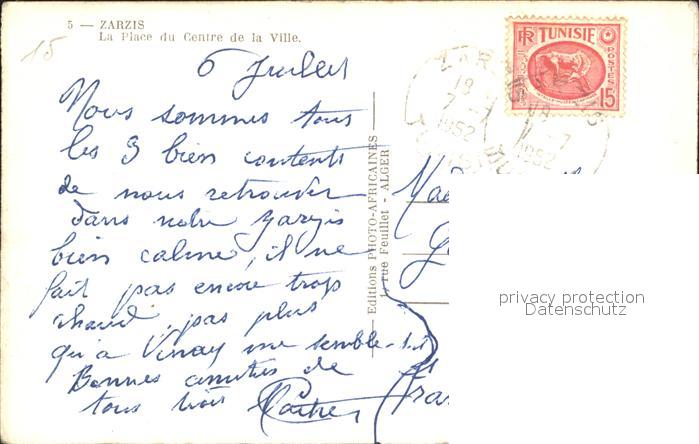 5 — ZARZIS
La Place du Centre de la Ville.
15
6 Juillet
Nous sommes tous
les 3 bien contents
de nous retrouver
dans notre Zarzis
bien calme, il ne
fait pas encore trop
chaud, pas plus
qu'à Vinay me semble-t-il
Bonnes amitiés de
tous trois
Editions PHOTO-AFRICAINES
1, rue Feuillet - ALGER
RF TUNISIE
POSTES
15
ZARZIS
19
7-7
1952
-7
1952
privacy protection
Datenschutz